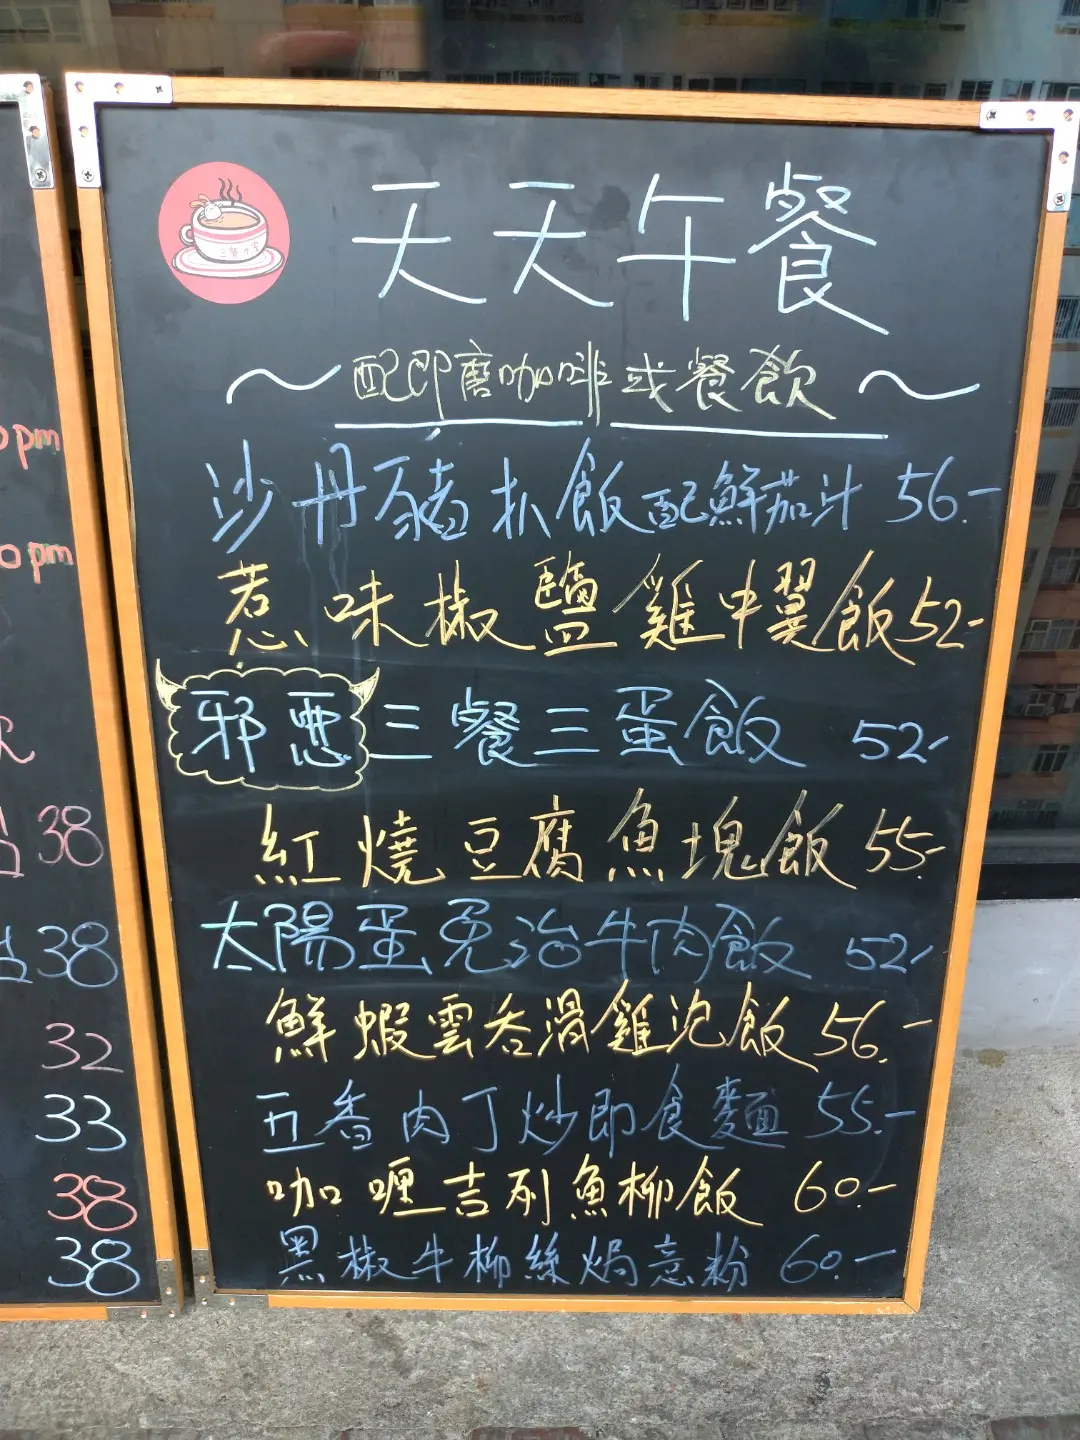 天天午餐
三餐の家
～配即磨咖啡或餐飲～
沙丹豬扒飯配鮮茄汁 56.-
惹味椒鹽雞中翼飯 52.-
邪惡三餐三蛋飯 52.-
紅燒豆腐魚塊飯 55.-
太陽蛋免治牛肉飯 52.-
鮮蝦雲吞滑雞泡飯 56.-
五香肉丁炒即食麵 55.-
咖喱吉列魚柳飯 60.-
黑椒牛柳絲焗意粉 60.-
0pm
0pm
38
38
32
33
38
38